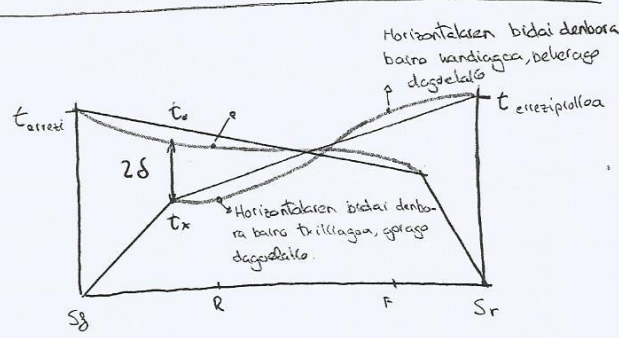 Horizontalaren bidai denbora
baino handiagoa, beherago
dagoelako
t errezi
t erreziprokoa
2δ
tx
Horizontalaren bidai denbo-
ra baino txikiagoa, gorago
dagoelako.
R
F
Sf
Sr